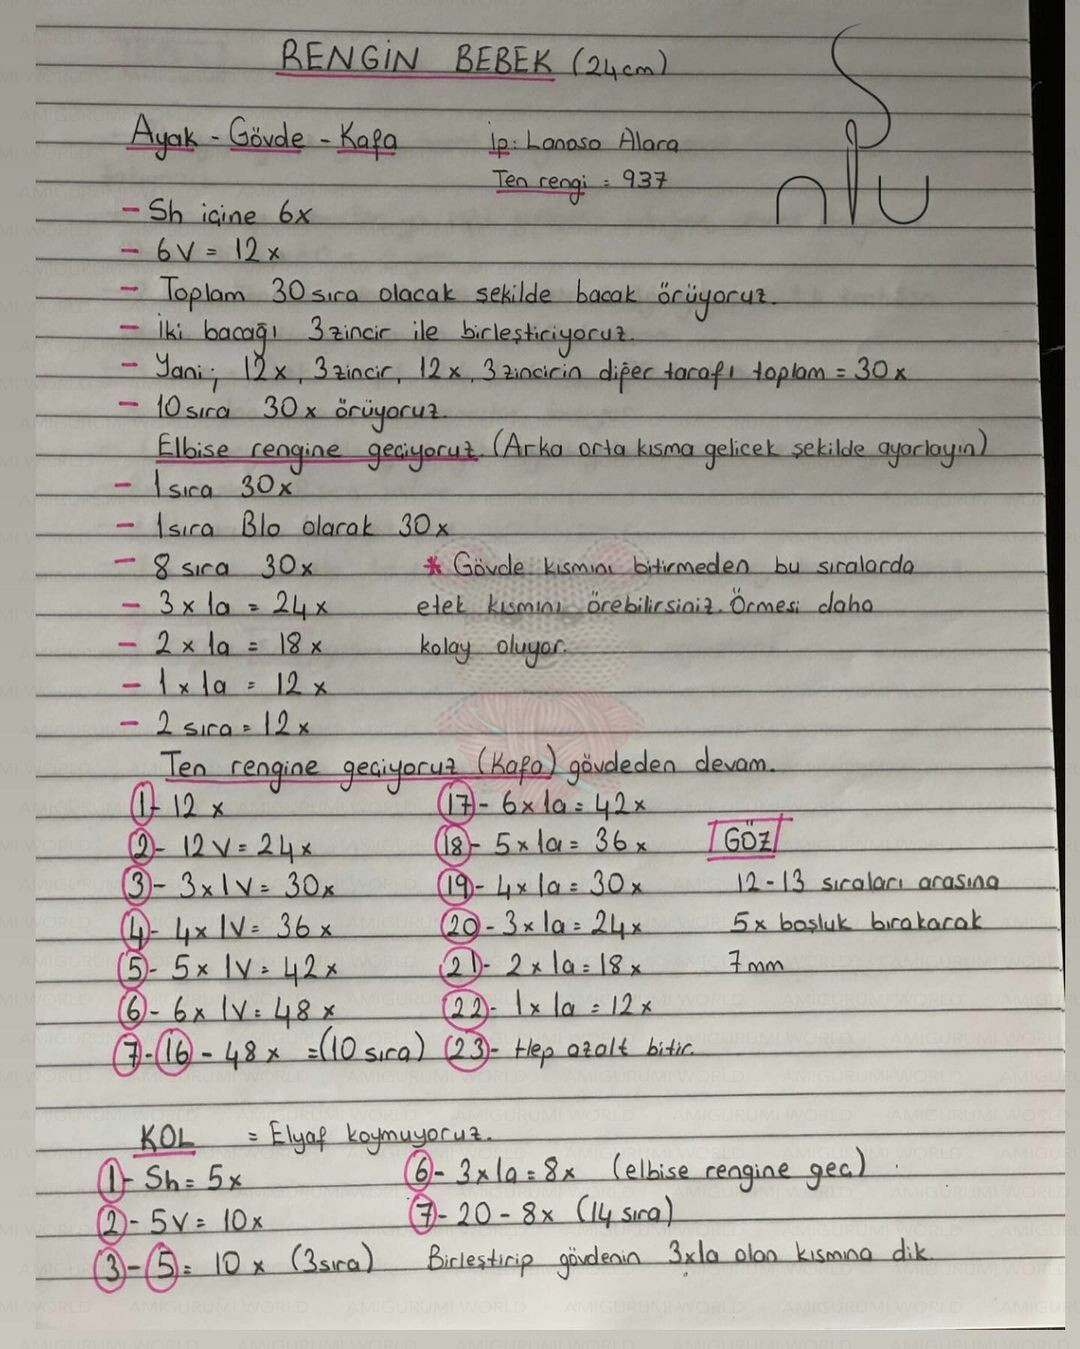 RENGİN BEBEK (24cm)
Ayak - Gövde - Kafa
İp: Lanoso Alara
Ten rengi = 937
- Sh içine 6x
- 6V = 12x
- Toplam 30 sıra olacak şekilde bacak örüyoruz.
- İki bacağı 3 zincir ile birleştiriyoruz.
- Yani; 12x, 3 zincir, 12x, 3 zincirin diğer tarafı toplam = 30x
- 10 sıra 30x örüyoruz.
Elbise rengine geçiyoruz. (Arka orta kısma gelicek şekilde ayarlayın)
- 1 sıra 30x
- 1 sıra Blo olarak 30x
- 8 sıra 30x
- 3x1a = 24x
- 2x1a = 18x
- 1x1a = 12x
- 2 sıra = 12x
* Gövde kısmını bitirmeden bu sıralarda
etek kısmını örebilirsiniz. Örmesi daha
kolay oluyor.
Ten rengine geçiyoruz (Kafa) gövdeden devam.
1- 12x
2- 12V = 24x
3- 3x1V = 30x
4- 4x1V = 36x
5- 5x1V = 42x
6- 6x1V = 48x
7-16- 48x =(10 sıra)
17- 6x1a = 42x
18- 5x1a = 36x
19- 4x1a = 30x
20- 3x1a = 24x
21- 2x1a = 18x
22- 1x1a = 12x
23- Hep azalt bitir.
GÖZ
12-13 sıraları arasına
5x boşluk bırakarak
7mm
KOL = Elyaf koymuyoruz.
1- Sh = 5x
2- 5V = 10x
3-5 = 10x (3 sıra)
6- 3x1a = 8x (elbise rengine geç)
7- 20 - 8x (14 sıra)
Birleştirip gövdenin 3x1a olan kısmına dik.
AMIGURUMI WORLD